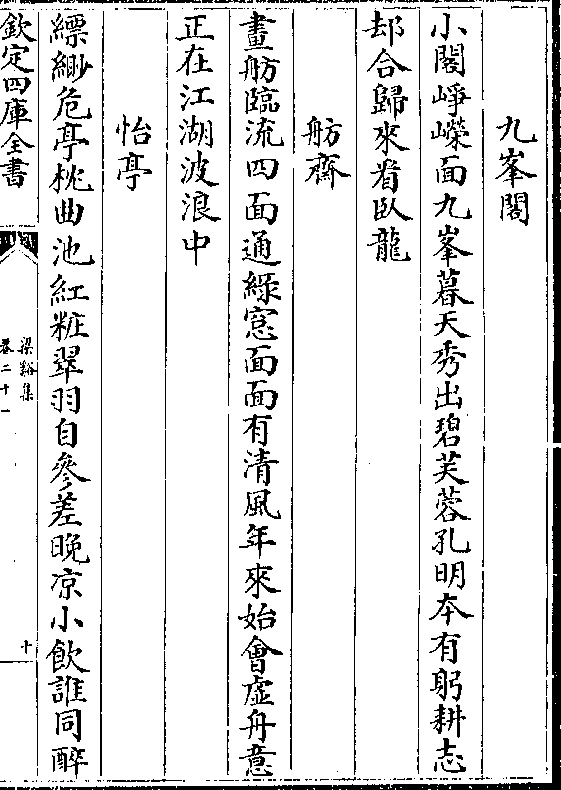 九峯閣
小閣崢嶸面九峯暮天秀出碧芙蓉孔明本有躬耕志
却合歸來看臥龍
舫齋
畫舫臨流四面通緑窓面面有清風年來始會虛舟意
正在江湖波浪中
怡亭
縹緲危亭枕曲池紅粧翠羽自參差晚凉小飲誰同醉
欽定四庫全書
梁谿集
卷二十一
十